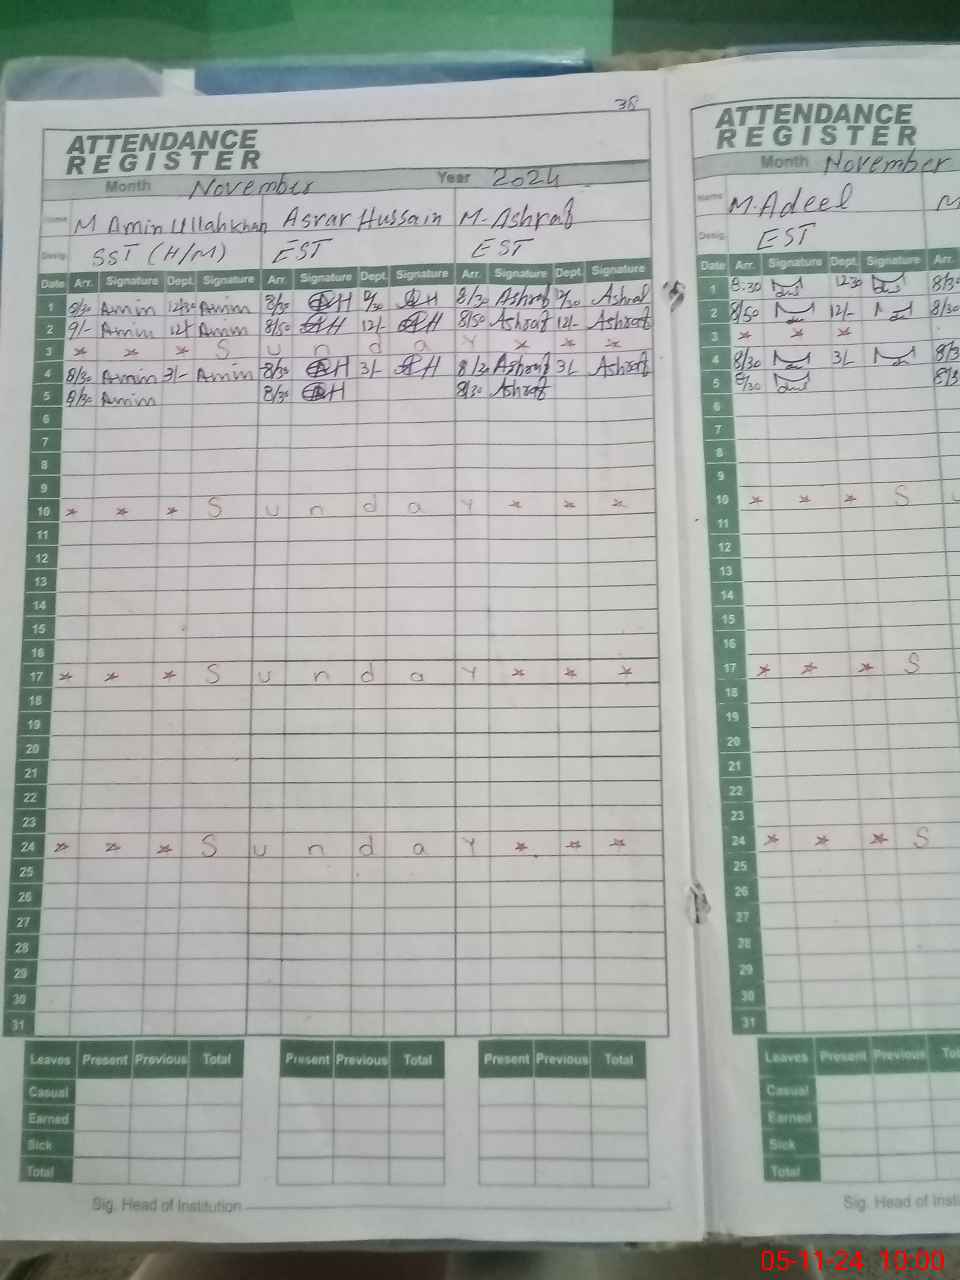 38
ATTENDANCE
REGISTER
Month November Year 2024
Name M Amin Ullah khan Asrar Hussain M. Ashraf
Desig. SST (H/M) EST EST
Date Arr. Signature Dept. Signature Arr. Signature Dept. Signature Arr. Signature Dept. Signature
1 8/30 Amin 12:30 Amin 8/30 AH 12/30 AH 8/30 Ashraf 12/30 Ashraf
2 9/- Amin 12/- Amin 8/50 AH 12/- AH 8/50 Ashraf 12/- Ashraf
3 * * * S u n d a y * * *
4 8/30 Amin 3/- Amin 8/30 AH 3/- AH 8/30 Ashraf 3/- Ashraf
5 8/30 Amin 8/30 AH 8/30 Ashraf
6
7
8
9
10 * * * S u n d a y * * *
11
12
13
14
15
16
17 * * * S u n d a y * * *
18
19
20
21
22
23
24 * * * S u n d a y * * *
25
26
27
28
29
30
31
Leaves Present Previous Total Present Previous Total Present Previous Total
Casual
Earned
Sick
Total
Sig. Head of Institution
ATTENDANCE
REGISTER
Month November
Name M. Adeel M
Desig. EST
Date Arr. Signature Dept. Signature Arr.
1 8.30 12 30 8/30
2 8/50 12/- 8/30
3 * * *
4 8/30 3/- 8/3
5 8/30 8/3
6
7
8
9
10 * * * S u
11
12
13
14
15
16
17 * * * S
18
19
20
21
22
23
24 * * * S
25
26
27
28
29
30
31
Leaves Present Previous Tot
Casual
Earned
Sick
Total
Sig. Head of Insti
05-11-24 10:00